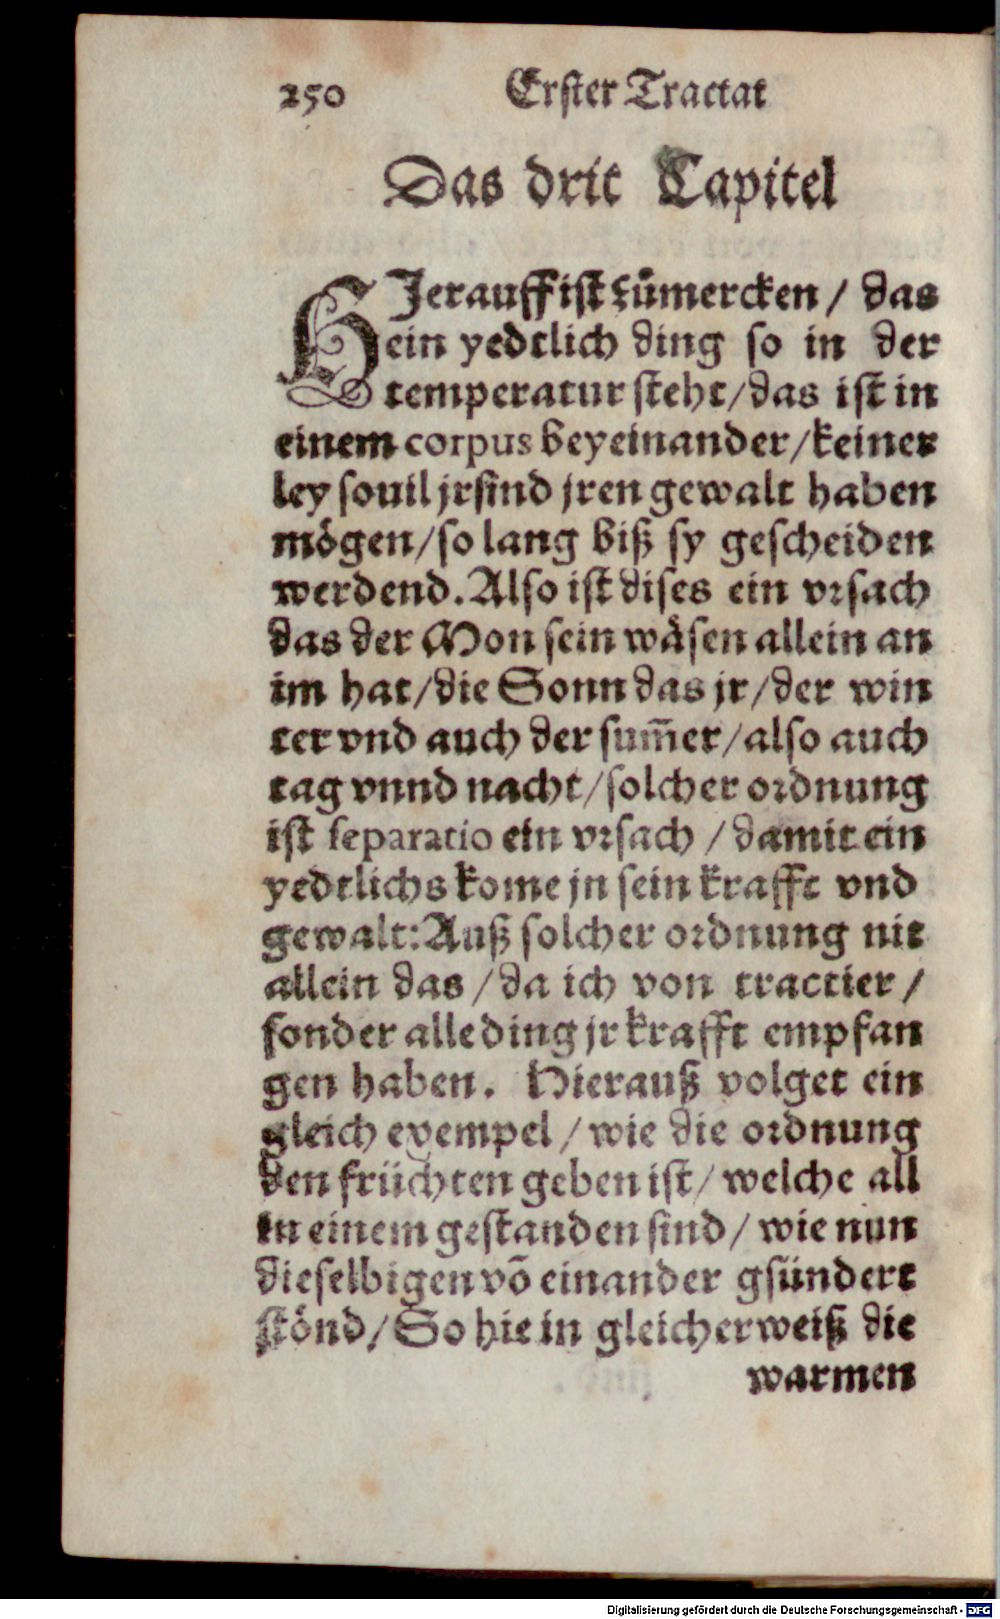 250 Erster Tractat
Das drit Capitel
HJerauff ist zůmercken / das
ein yedtlich ding so in der
temperatur steht / das ist in
einem corpus beyeinander / keiner
ley souil jrsind jren gewalt haben
mögen / so lang biß sy gescheiden
werdend. Also ist dises ein vrsach
das der Mon sein wäsen allein an
im hat / die Sonn das jr / der win
ter vnd auch der sum̄er / also auch
tag vnnd nacht / solcher ordnung
ist separatio ein vrsach / damit ein
yedtlichs kome jn sein krafft vnd
gewalt: Auß solcher ordnung nit
allein das / da ich von tractier /
sonder alle ding jr krafft empfan
gen haben. Hierauß volget ein
gleich exempel / wie die ordnung
den früchten geben ist / welche all
in einem gestanden sind / wie nun
dieselbigen võ einander gsündert
stönd / So hie in gleicher weiß die
warmen
Digitalisierung gefördert durch die Deutsche Forschungsgemeinschaft - DFG